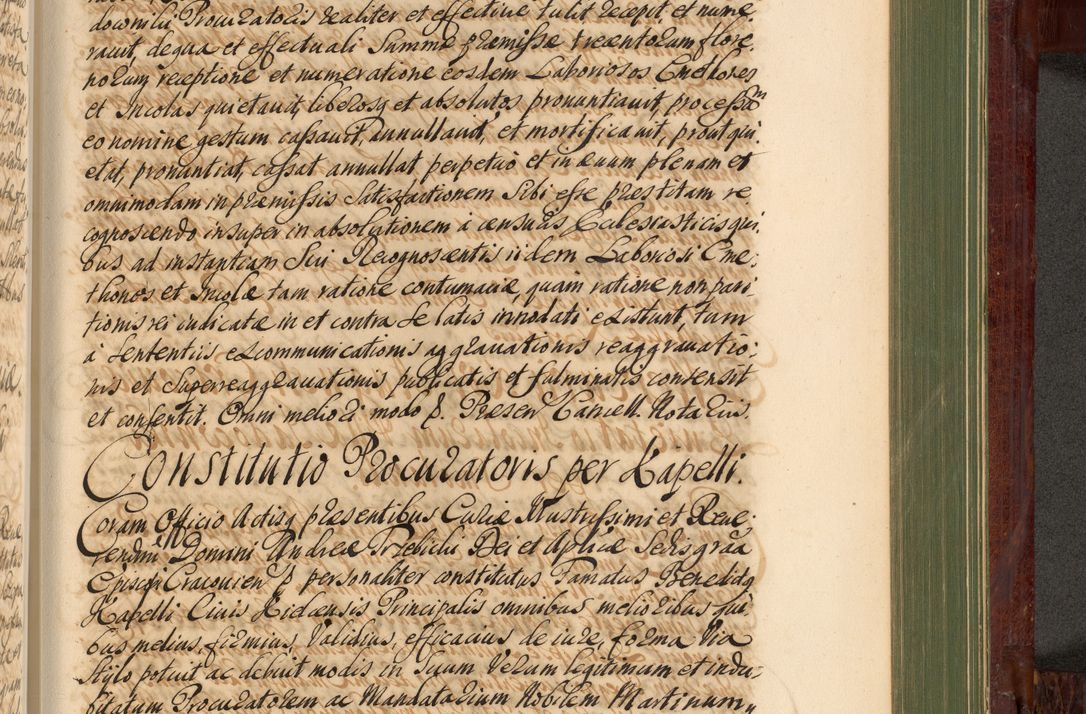 domilii Procuratoris realiter et effective tulit recepit et nume,
ravit, de qua et effectuali Summæ præmissæ trecentorum flore,
norum receptione et numeratione eosdem Laboriosos Cmethones
et Incolas quietavit, liberosq et absolutos pronuntiavit, processum
eo nomine gestum cassavit, annullavit, et mortificavit, prout qui,
etat, pronuntiat, cassat annullat perpetuo et in ævum plenam et
omnimodam in præmissis satisfactionem Sibi esse præstitam re
cognoscendo insuper in absolutionem à censuris Ecclesiasticis qui,
bus ad instantiam Sui Recognoscentis iidem Laboriosi Cme,
thones et Incolæ tam ratione contumaciæ, quam ratione non pari,
tionis rei iudicatæ in et contra se latis innodati existunt, tum
à Sententiis excommunicationis aggravationis reaggravatio,
nis et Superreaggravationis publicatis et fulminatis consensit
et consentit. Omni meliori modo p. Præsen Cancell. Notarii.
Constitutio Procuratoris per Kapelli.
Coram Officio Actisq præsentibus Curiæ Illustrissimi et Reve,
rendmi Domini Andreæ Trzebicki Dei et Aplicæ Sedis graa
Episcopi Cracovien p personaliter constitutus Famatus Benedictq
Kapelli Civis Kielcensis Principalis omnibus melioribus qui
bus melius, firmius, Validius, efficacius de iure, forma Via
Stylo potuit ac debuit modis in Suum Verum legitimum et indu,
bitatum Procuratorem ac Mandatarium Nobilem Martinum